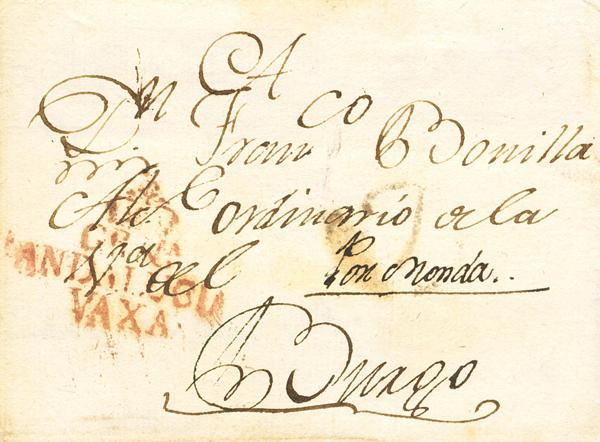 A
Dn Franco Bonilla
Alce Ordinario de la
Va del
Por Monda.
Burgo
ANDALUCIA
VAXA.